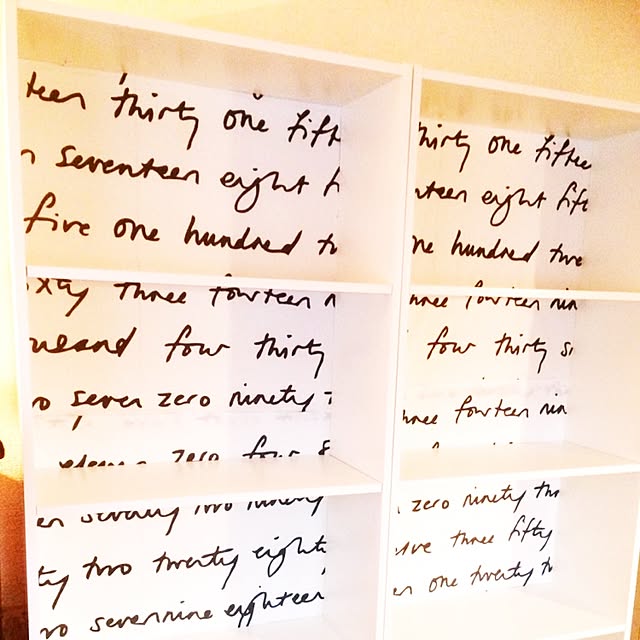 teen thirty one fift
n seventeen eight f
five one hundred tw
xty three fourteen n
usand four thirty
o seven zero ninety
zero four s
en seventy two ninety
ty two twenty eight
wo sevennine eighteen
thirty one fiftee
nteen eight fift
ne hundred twe
hree fourteen nin
four thirty si
three fourteen nin
zero ninety thr
lve three fifty
en one twenty tw